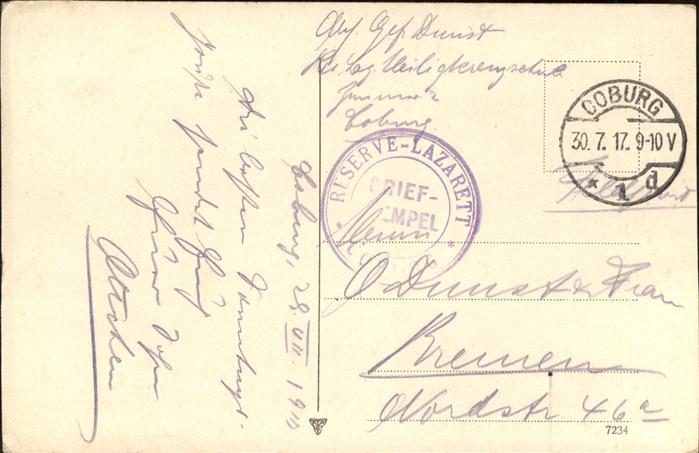 Coburg, 28. VII. 1917
Die besten Sonntags-
grüße sendet Euch
Euer Sohn
Abs. Gef. Dunst
Rs. Laz. Heiligkreuzschule
Zimmer 2
Coburg.
COBURG
30. 7. 17. 9-10 V
* 1 d
RESERVE-LAZARETT
BRIEF-
STEMPEL
Feldpost
Herrn
O Dunst & Frau
Bremen
Nordstr 46a
7234